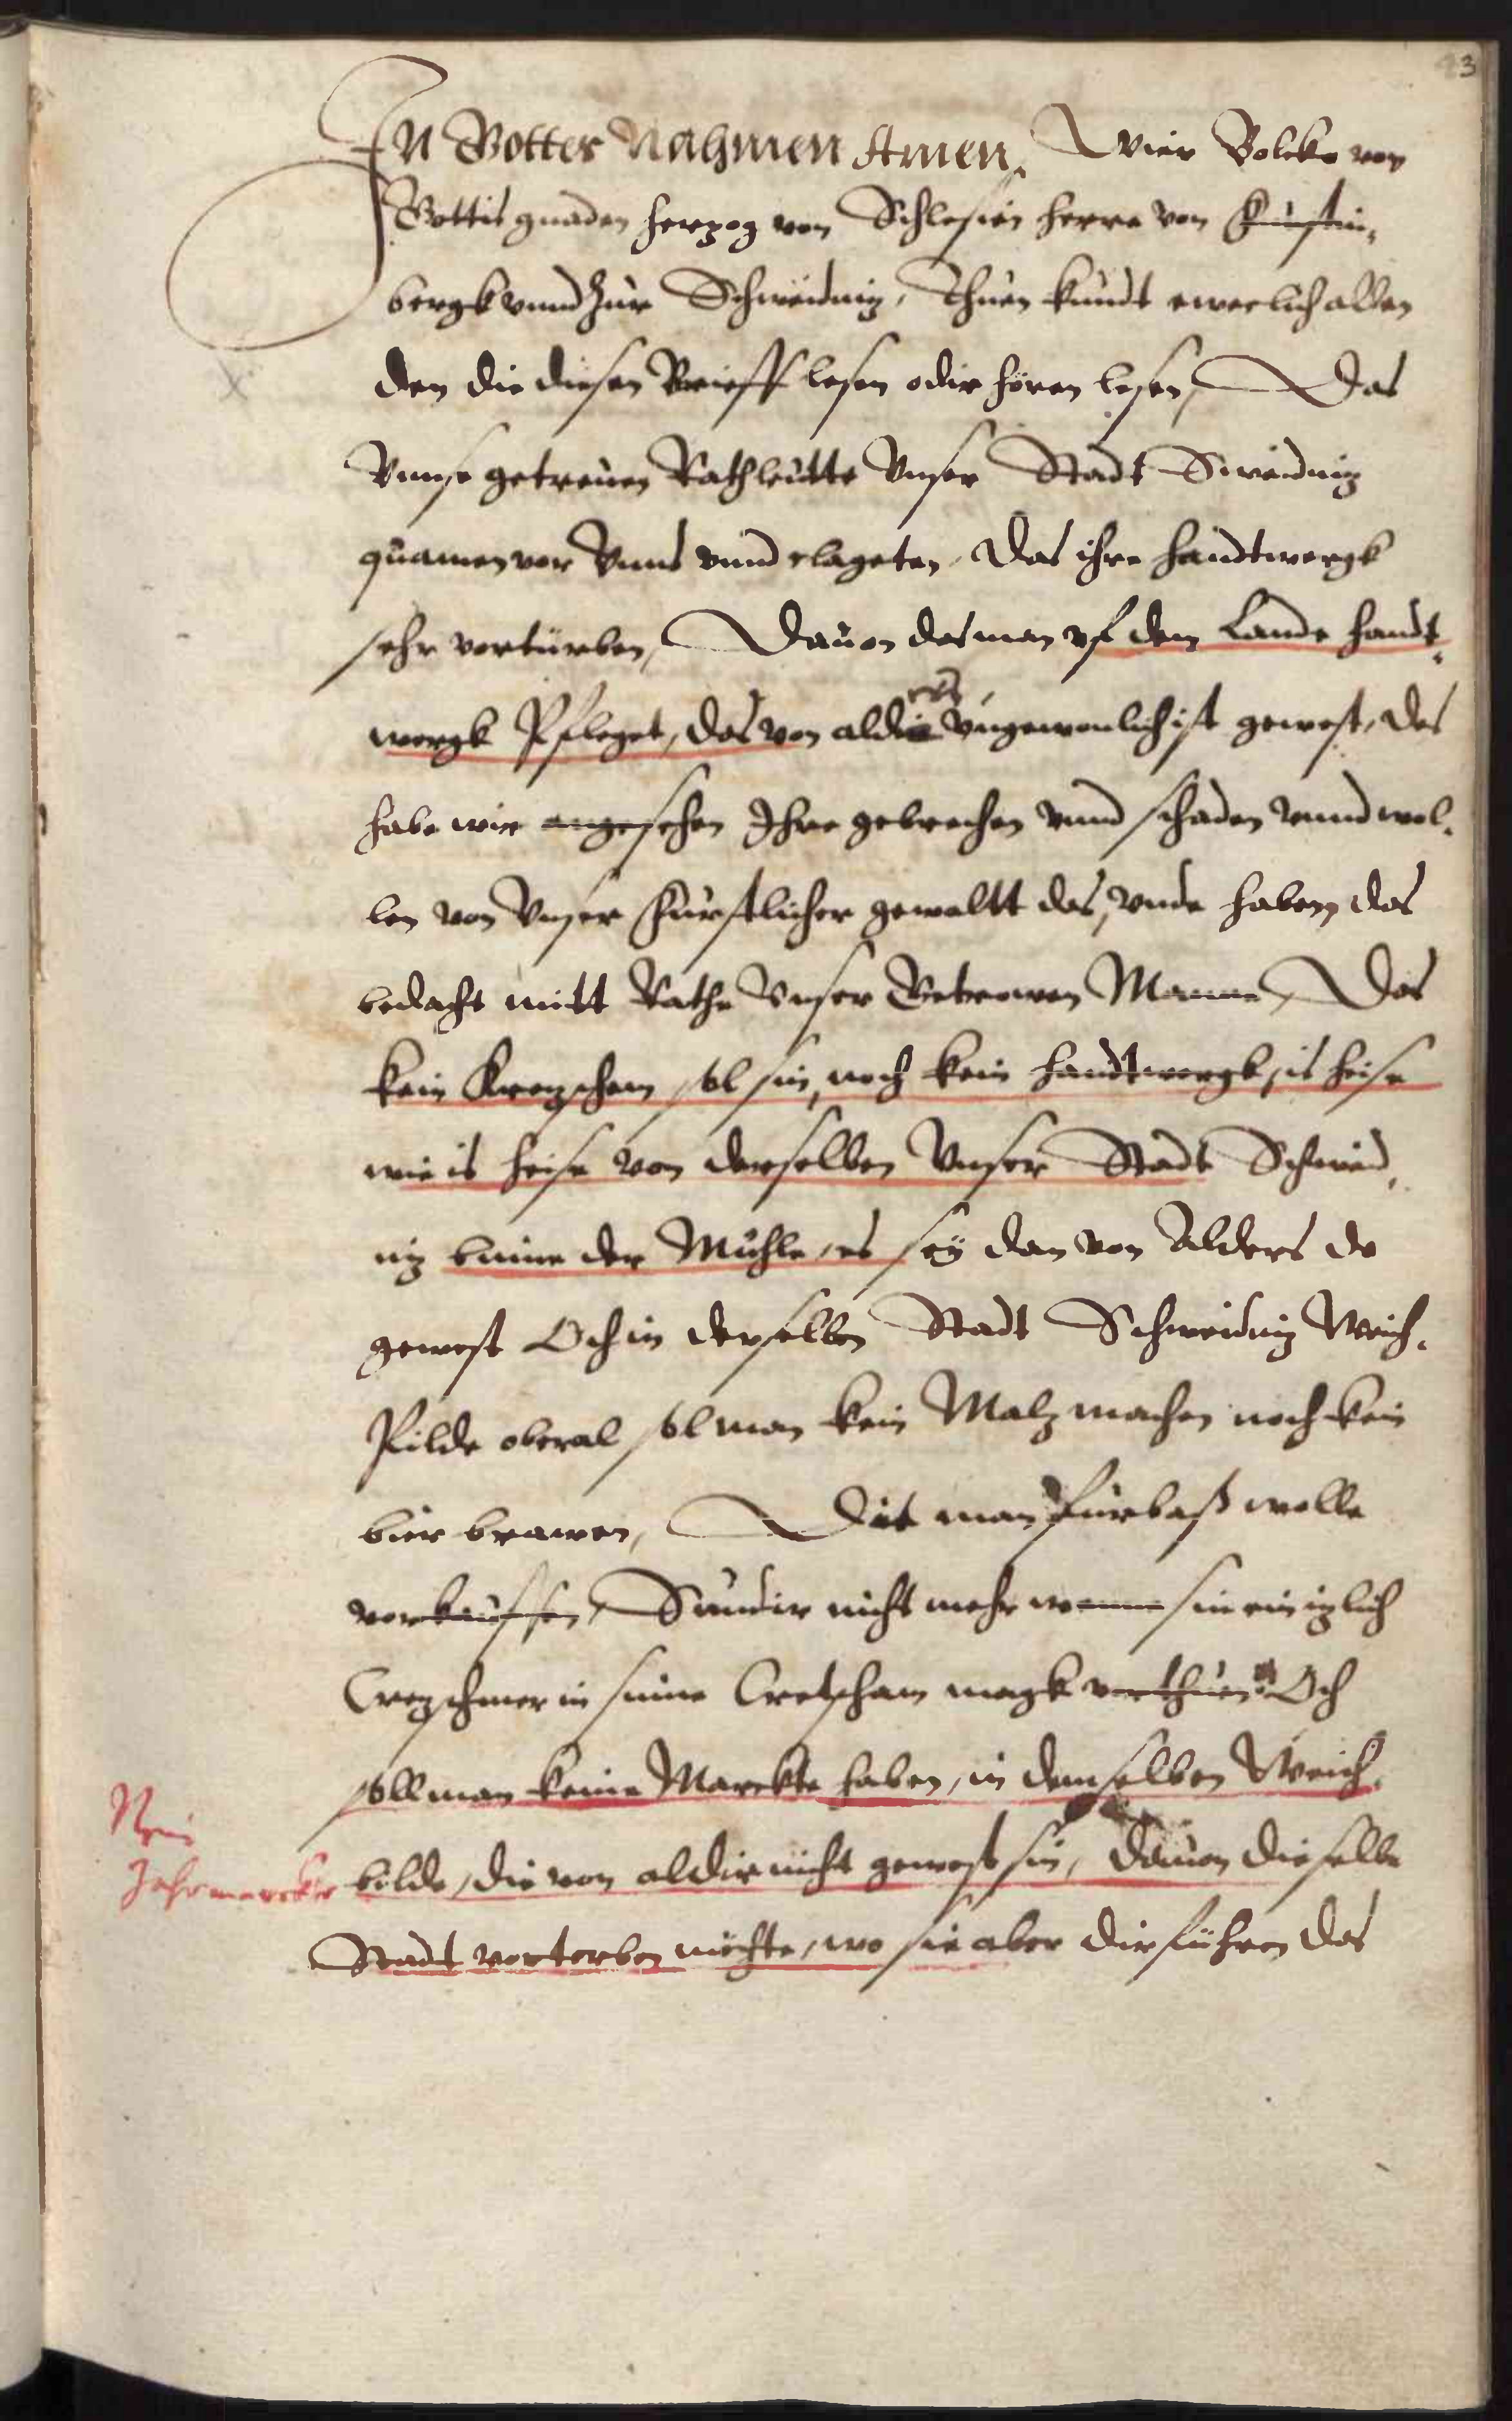 43
In Gottes Nahmen Amen, Wier Bolcko von
Gottis gnaden herzog von Schlesien herre von Fürstin,
bergk vnnd Zur Schweidnitz, Thuen kundt ewerlich allen
den die diesen Brieff lesen odir hören lesen, Das
Vnnse getreuen Rathleutte Vnser Stadt Sweidnitz
quamen vor Vnns vnnd clageten, das ihre handtwergk
sehr vorturben, Dauon das man vf dem Lande handt,
wergk Pfleget, das von aldirs vngewonlich ist gewest, des
habe wir angesehen Ihre gebrechen vnnd schaden vnnd wol,
len von Vnser Fürstlicher gewaltt das, vnde haben das
bedacht mitt Rathe Vnser Getrewen Manne, Das
kein Kreczschem sol sin, noch kein handtwergk, is heise
wie is heise von derselben Vnser Stadt Schweid,
nitz binne der Mühle, es sey dan von Alders do
gewest Och in derselben Stadt Schweidnitz Weich,
Pilde oberal sol man kein Malz machen noch kein
bier brawen, Dat man fürbaß wolle
vorkauffen, Sundir nicht mehr wenne sin ein izlich
Creczschmer in sime Cretscham magk verthuen Och
soll man keine Marckte haben, in demselben Weich,
bilde, die von aldir nicht gewest sin, dauon dieselbe
Stadt vorterben möchte, wo sie aber dirführen das
Jahrmarckte